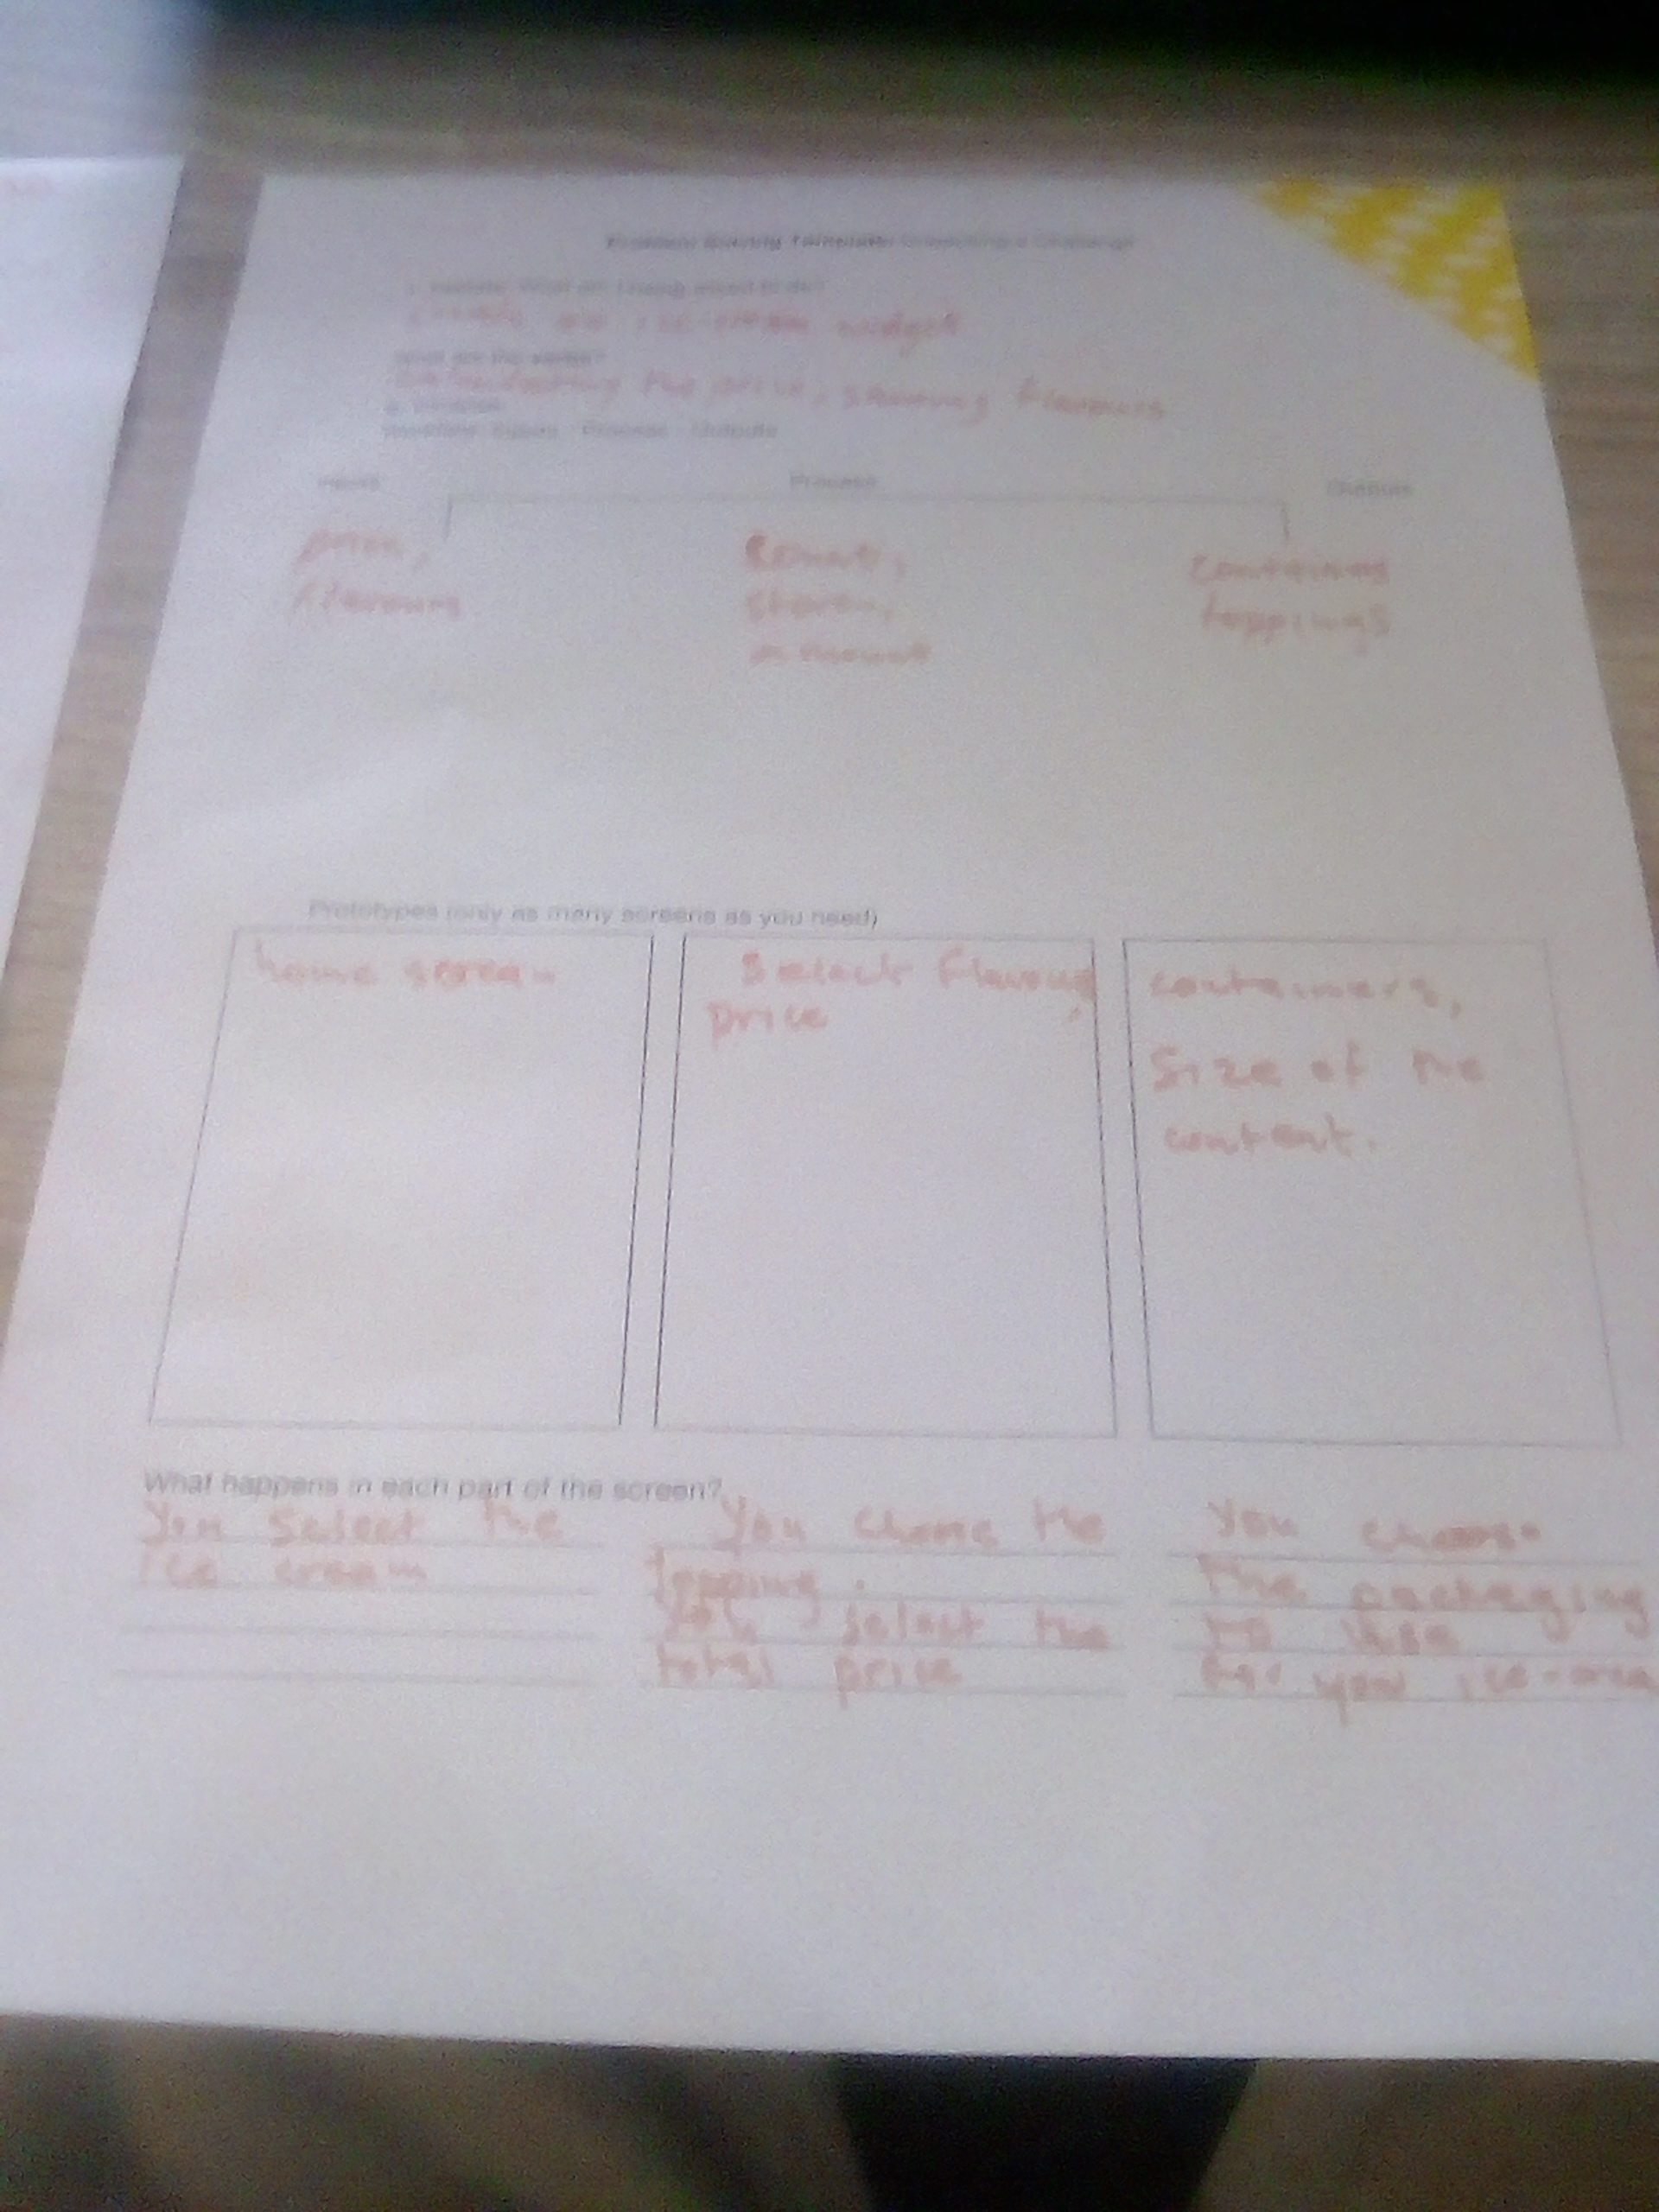 Problem Solving Template: Unpacking a Challenge
What am I being asked to do?
ice-cream widget
What are the verbs?
the price, flavours
Inputs Process Outputs
Process
price,
flavours
amount
containing
toppings
Prototypes (only as many screens as you need)
home screen
Select flavour,
price
containers,
Size of the
content.
What happens in each part of the screen?
You Select the
ice cream
You the
topping.
You select the
total price
You choose
the packaging
to use
for your ice-cream